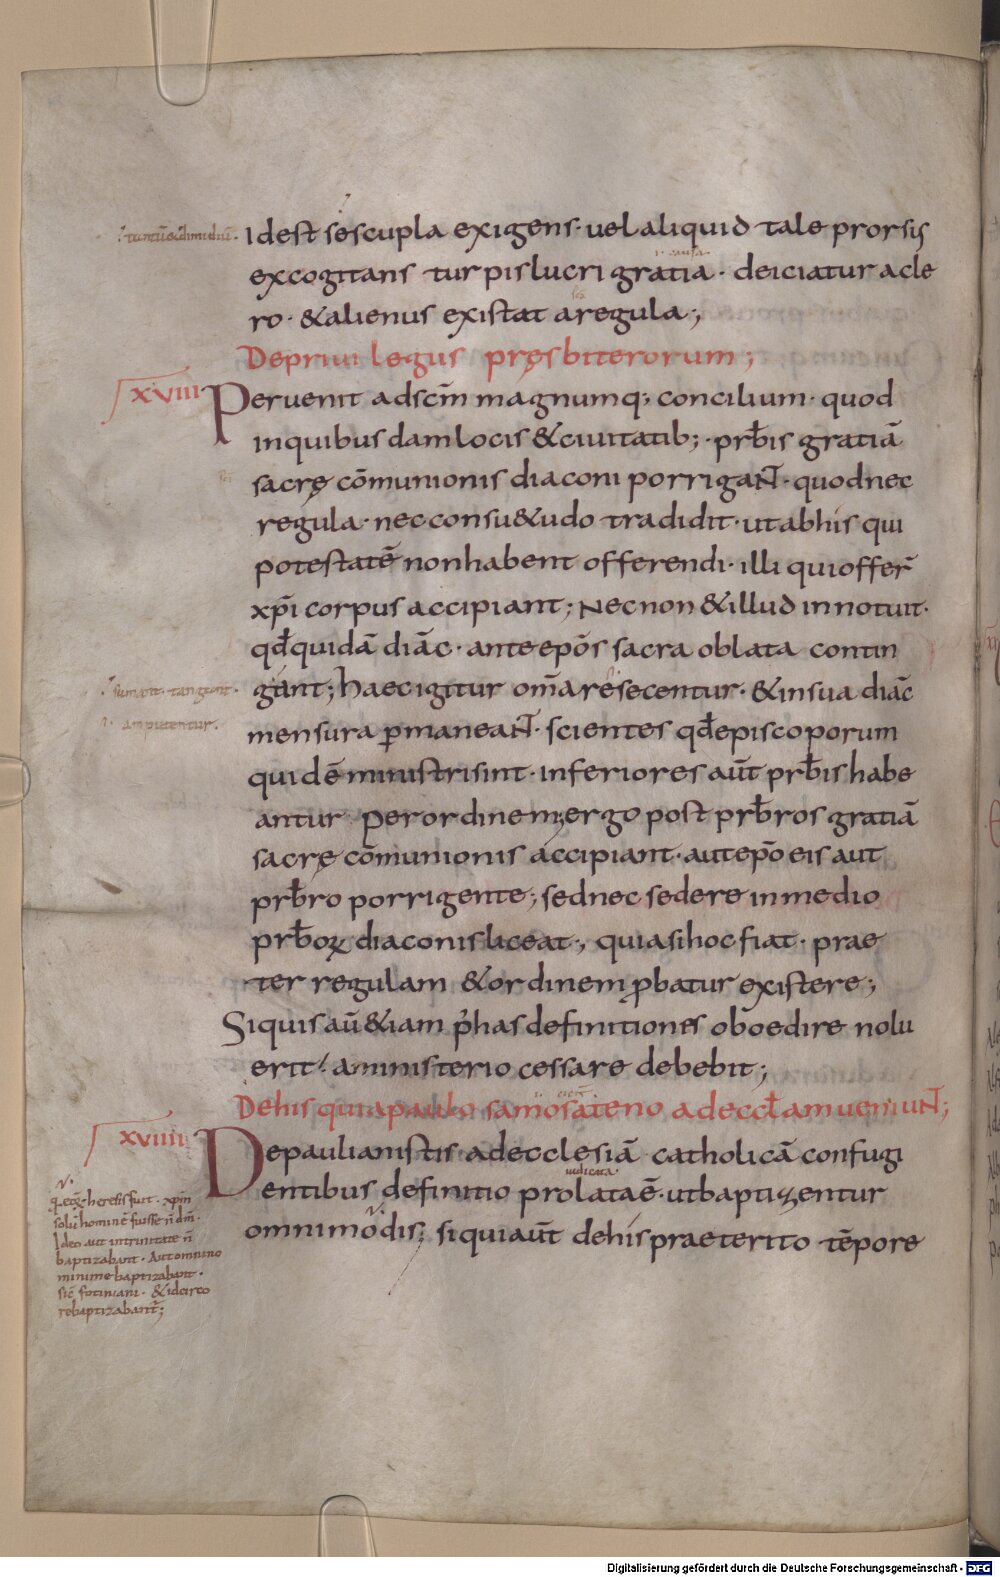 .i. tantũ &dimidiũ.
Idest sescupla exigens· uel aliquid tale prorsis
i· causa·
excogitans turpis lucri gratia· deiciatur acle
ro· &alienus existat aregula;
Depriuilegus pręsbiterorum;
XVIII
Peruenit adscm̄ magnumq; concilium· quod
inquibusdam locis &ciuitatib;· prb̄is gratiā
sacrę cōmunionis diaconi porrigaNT· quodnec
regula· nec consu&udo tradidit· utabhis qui
potestatē nonhabent offerendi· illi quioffer̄
xp̄i corpus accipiant; Necnon &illud innotuit·
qd̄quidā diāc· ante ep̄os sacra oblata contin
.i. sumant· tangant·
gant; haec igitur om̄a resecentur· &insua diāc
.i. amputentur·
mensura ꝑmaneaNT· scientes qd̄episcoporum
quidē ministri sint· inferiores aut̄ prb̄is habe
antur· Per ordinem ergo post prb̄ros gratiā
sacrę cōmunionis accipiant· aut ep̄o eis aut
prb̄ro porrigente; sednec sedere inmedio
prb̄oꝝ diaconis liceat·, quia sihoc fiat· prae
ter regulam &ordinem ꝓbatur existere;
Siquis aū &iam p̄ has definitiones oboedire nolu
erit· aministerio cessare debebit;
Dehis quiapaulo samosateno adeccl̄am ueniuNT;
XVIIII
Depaulianistis adecclesiā catholicā confugi
iudicata·
entibus definitio prolata ē· utbaptizentur
omnimodis; siquiaut̄ dehis praeterito tēpore
heresis fuit· xp̄m
solū hominē fuisse n̄ dm̄·
Ideo aut intrinitate n̄
baptizabant· Aut omnino
minime baptizabant·
sic̄ fotiniani· &idcirco
rebaptizabant̄;
Digitalisierung gefördert durch die Deutsche Forschungsgemeinschaft - DFG